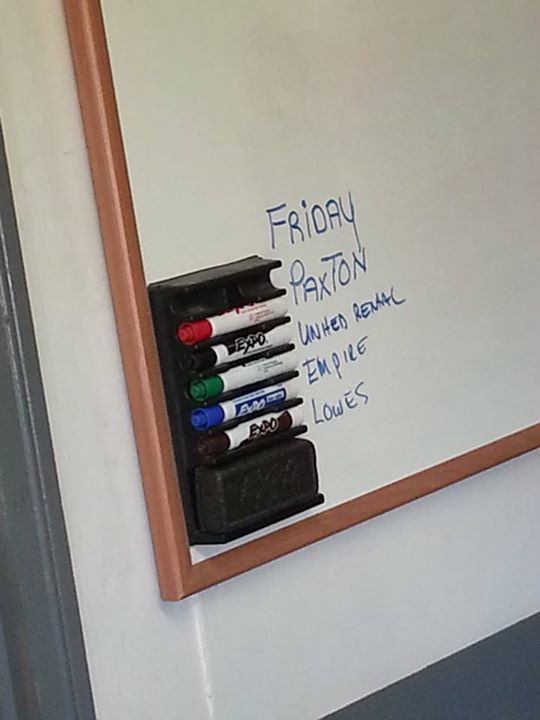 FRIDAY
PAXTON
UNITED RENTAL
EMPIRE
LOWES
EXPO
EXPO
EXPO